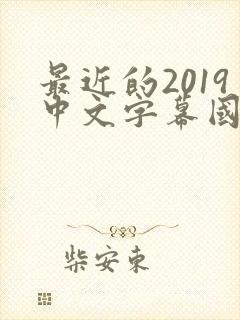 最近的2019
中文字幕國
柴安東